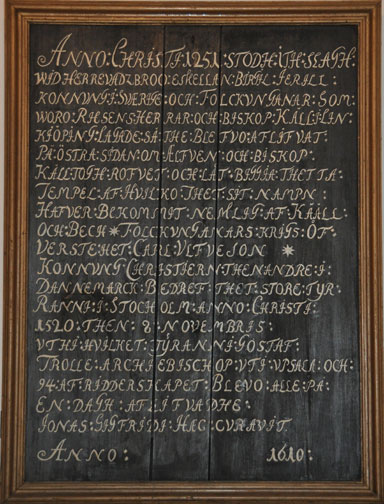 ANNO : CHRISTI 1251 : STODH : ITH : SLAGH :
WIDHERREVADZBROO : EMELLAN : BIRIL : IERILL :
KONNVNG I SWERIE : OCH : FOLCKVNGANAR : SOM :
WORO : RIESENS HERRAR : OCH BISKOP : KÄLL : LIN :
KIÖPING : LAGADE : SÅ THE : BLEFVO : AFLIFVAT :
PÅ : ÖSTRA : SIDAN : OM : ÄLFVEN : OCH : BISKOP .
KÄLLTOGH : ROFVET : OCH : LÄT : BIGGIA : THETTA :
TEMPEL : AF : HVILKO : THET : SIT : NAMPN :
HAFVER : BEKOMMIT : NEMLIG : AF : KÄLL :
OCH : BECH * FOLCKVNGANARS : KRIGS : ÖF .
VERSTE HET : CARL : VLFVESON *
KONNVNG : CHRISTIERN : THEN ANDRE : I :
DANNEMARCH : BEDREF : THET : STORE : TYR .
RANNI : I : STOCHOLM : ANNO : CHRISTI :
1520 : THEN : 8 : NOVEMBRIS :
VTHI : HVILHET : TYRANNI : GÖSTAF :
TROLLE : ARCHIEBISCHOP : VTI : VPSALA : OCH :
94 : AF : RIDDERSKAPET : BLEVO : ALLE : PÅ :
EN : DAGH : AFLIFVADHE :
IONAS : GIGFRIDI : HÆC : CVRAVIT
ANNO : 1610 :